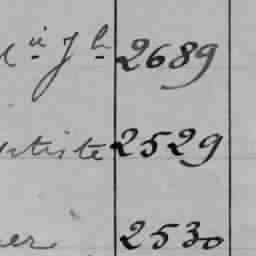 2689
tiste 2529
er 2530